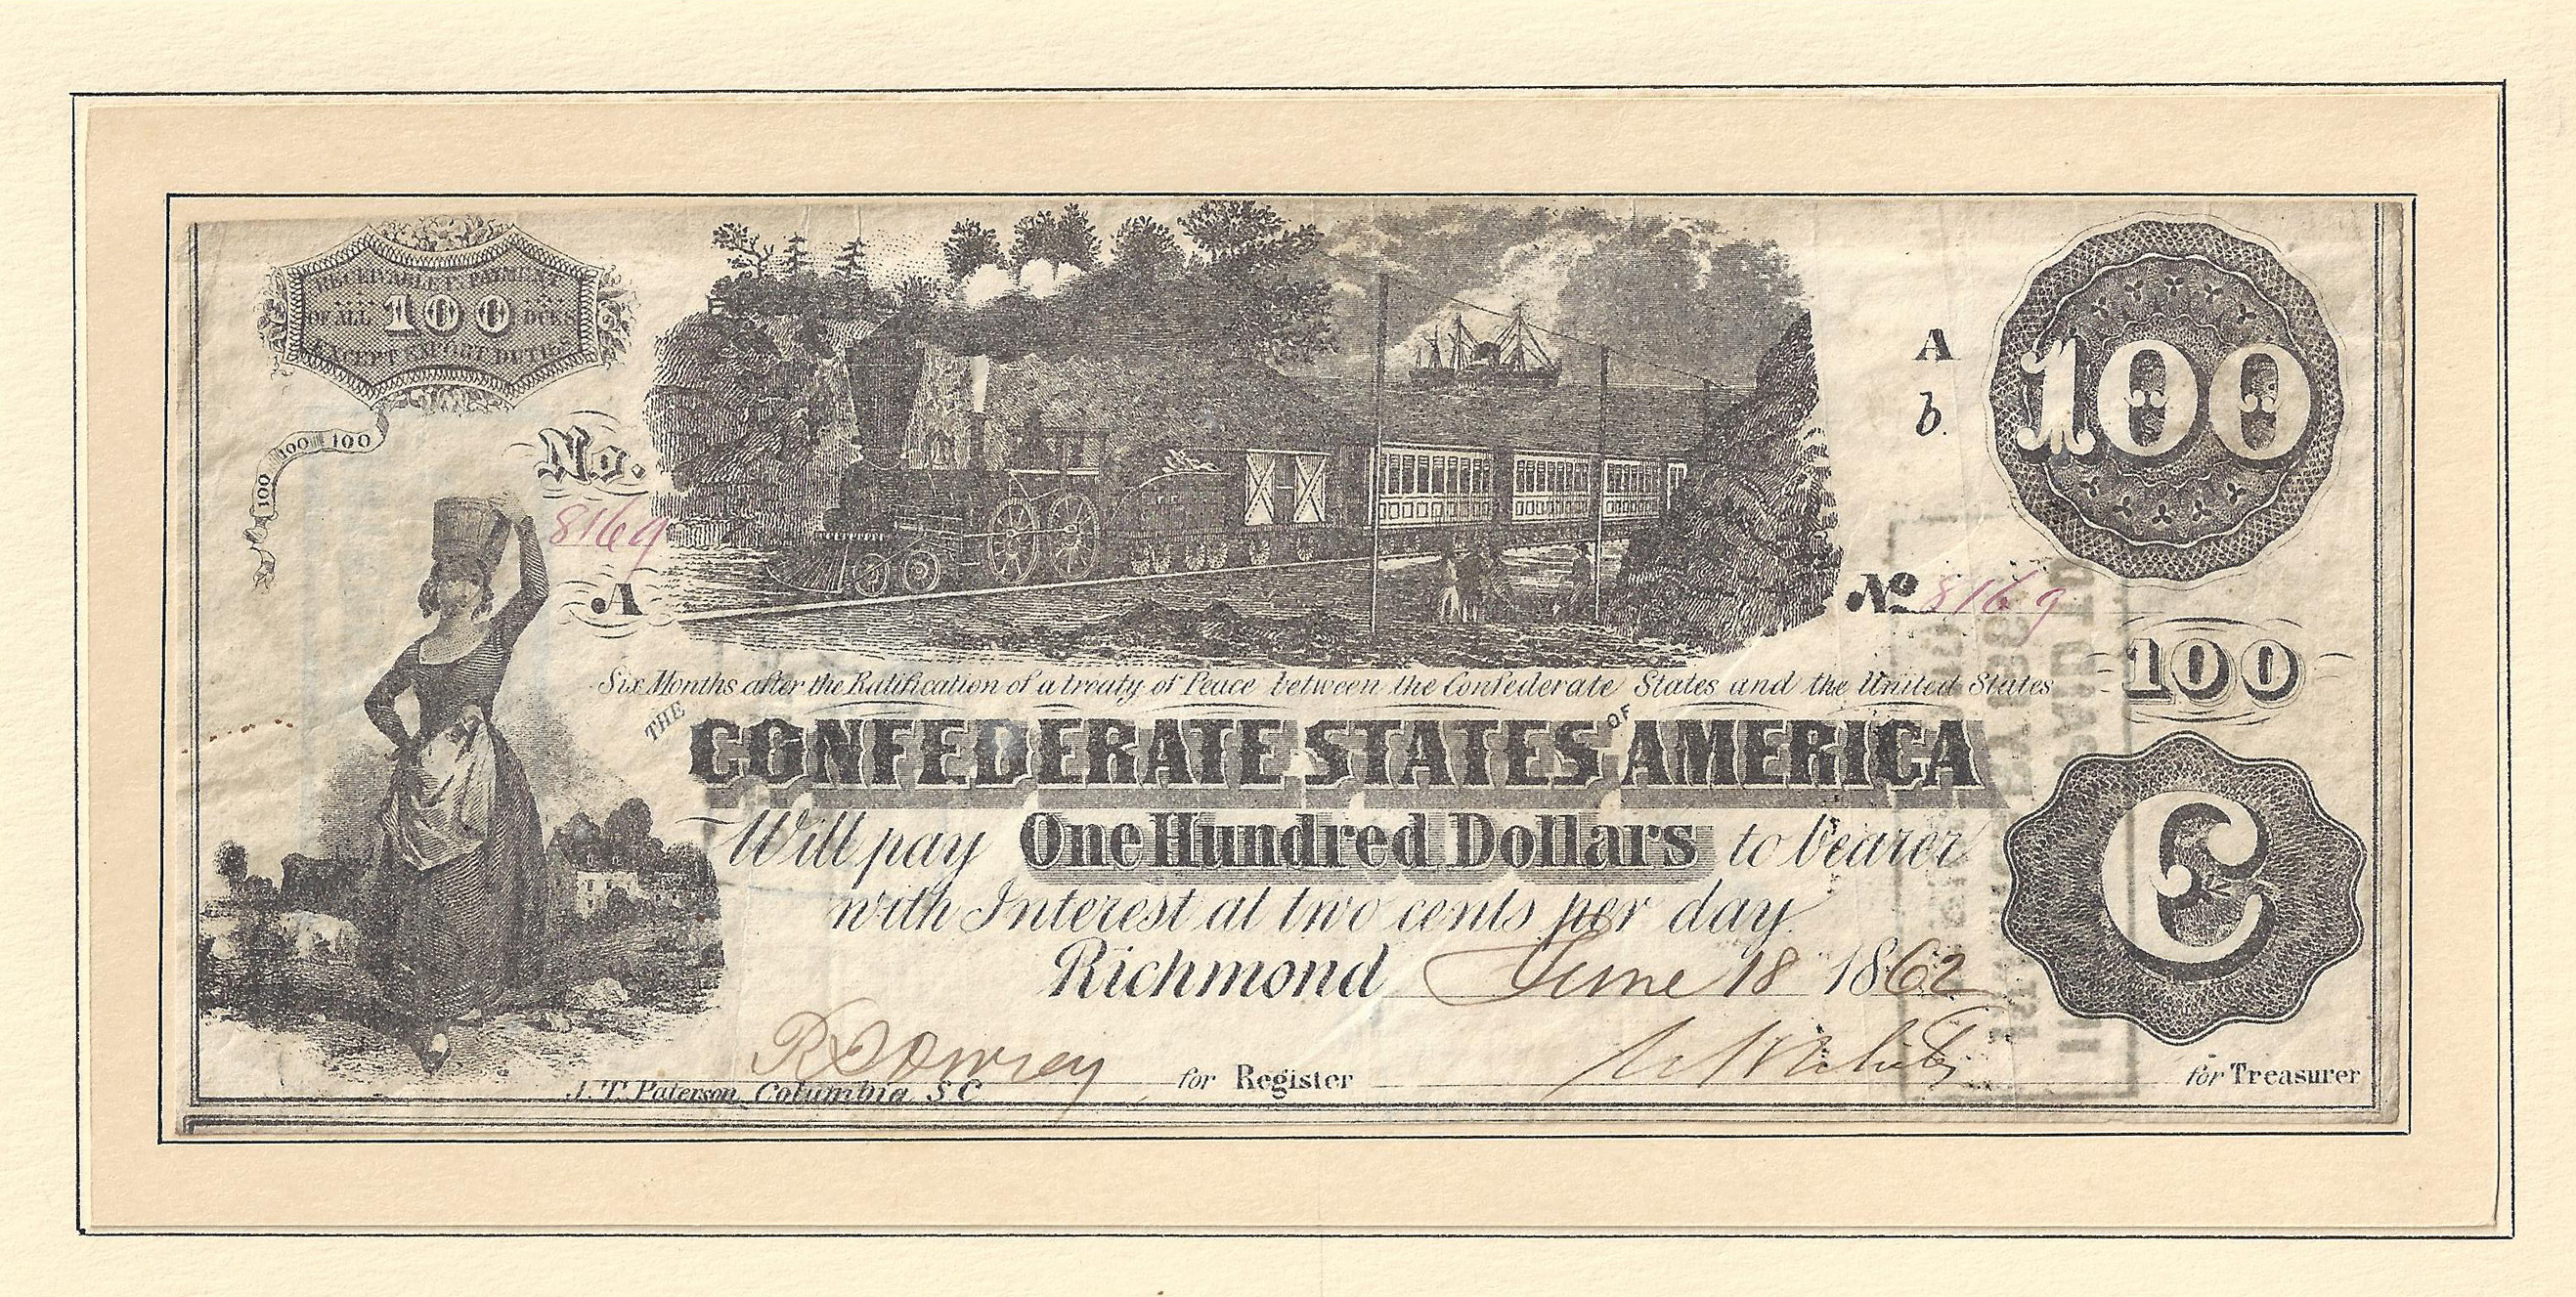 RECEIVABLE IN PAYMENT
OF ALL 100 DUES
EXCEPT EXPORT DUTIES
100 100 100
No.
8169
A
A
b.
100
No 8169
100
Six Months after the Ratification of a treaty of Peace between the Confederate States and the United States
THE CONFEDERATE STATES OF AMERICA
Will pay One Hundred Dollars to bearer
with Interest at two cents per day.
Richmond June 18 1862
C
for Register
for Treasurer
J. T. Paterson, Columbia, S C